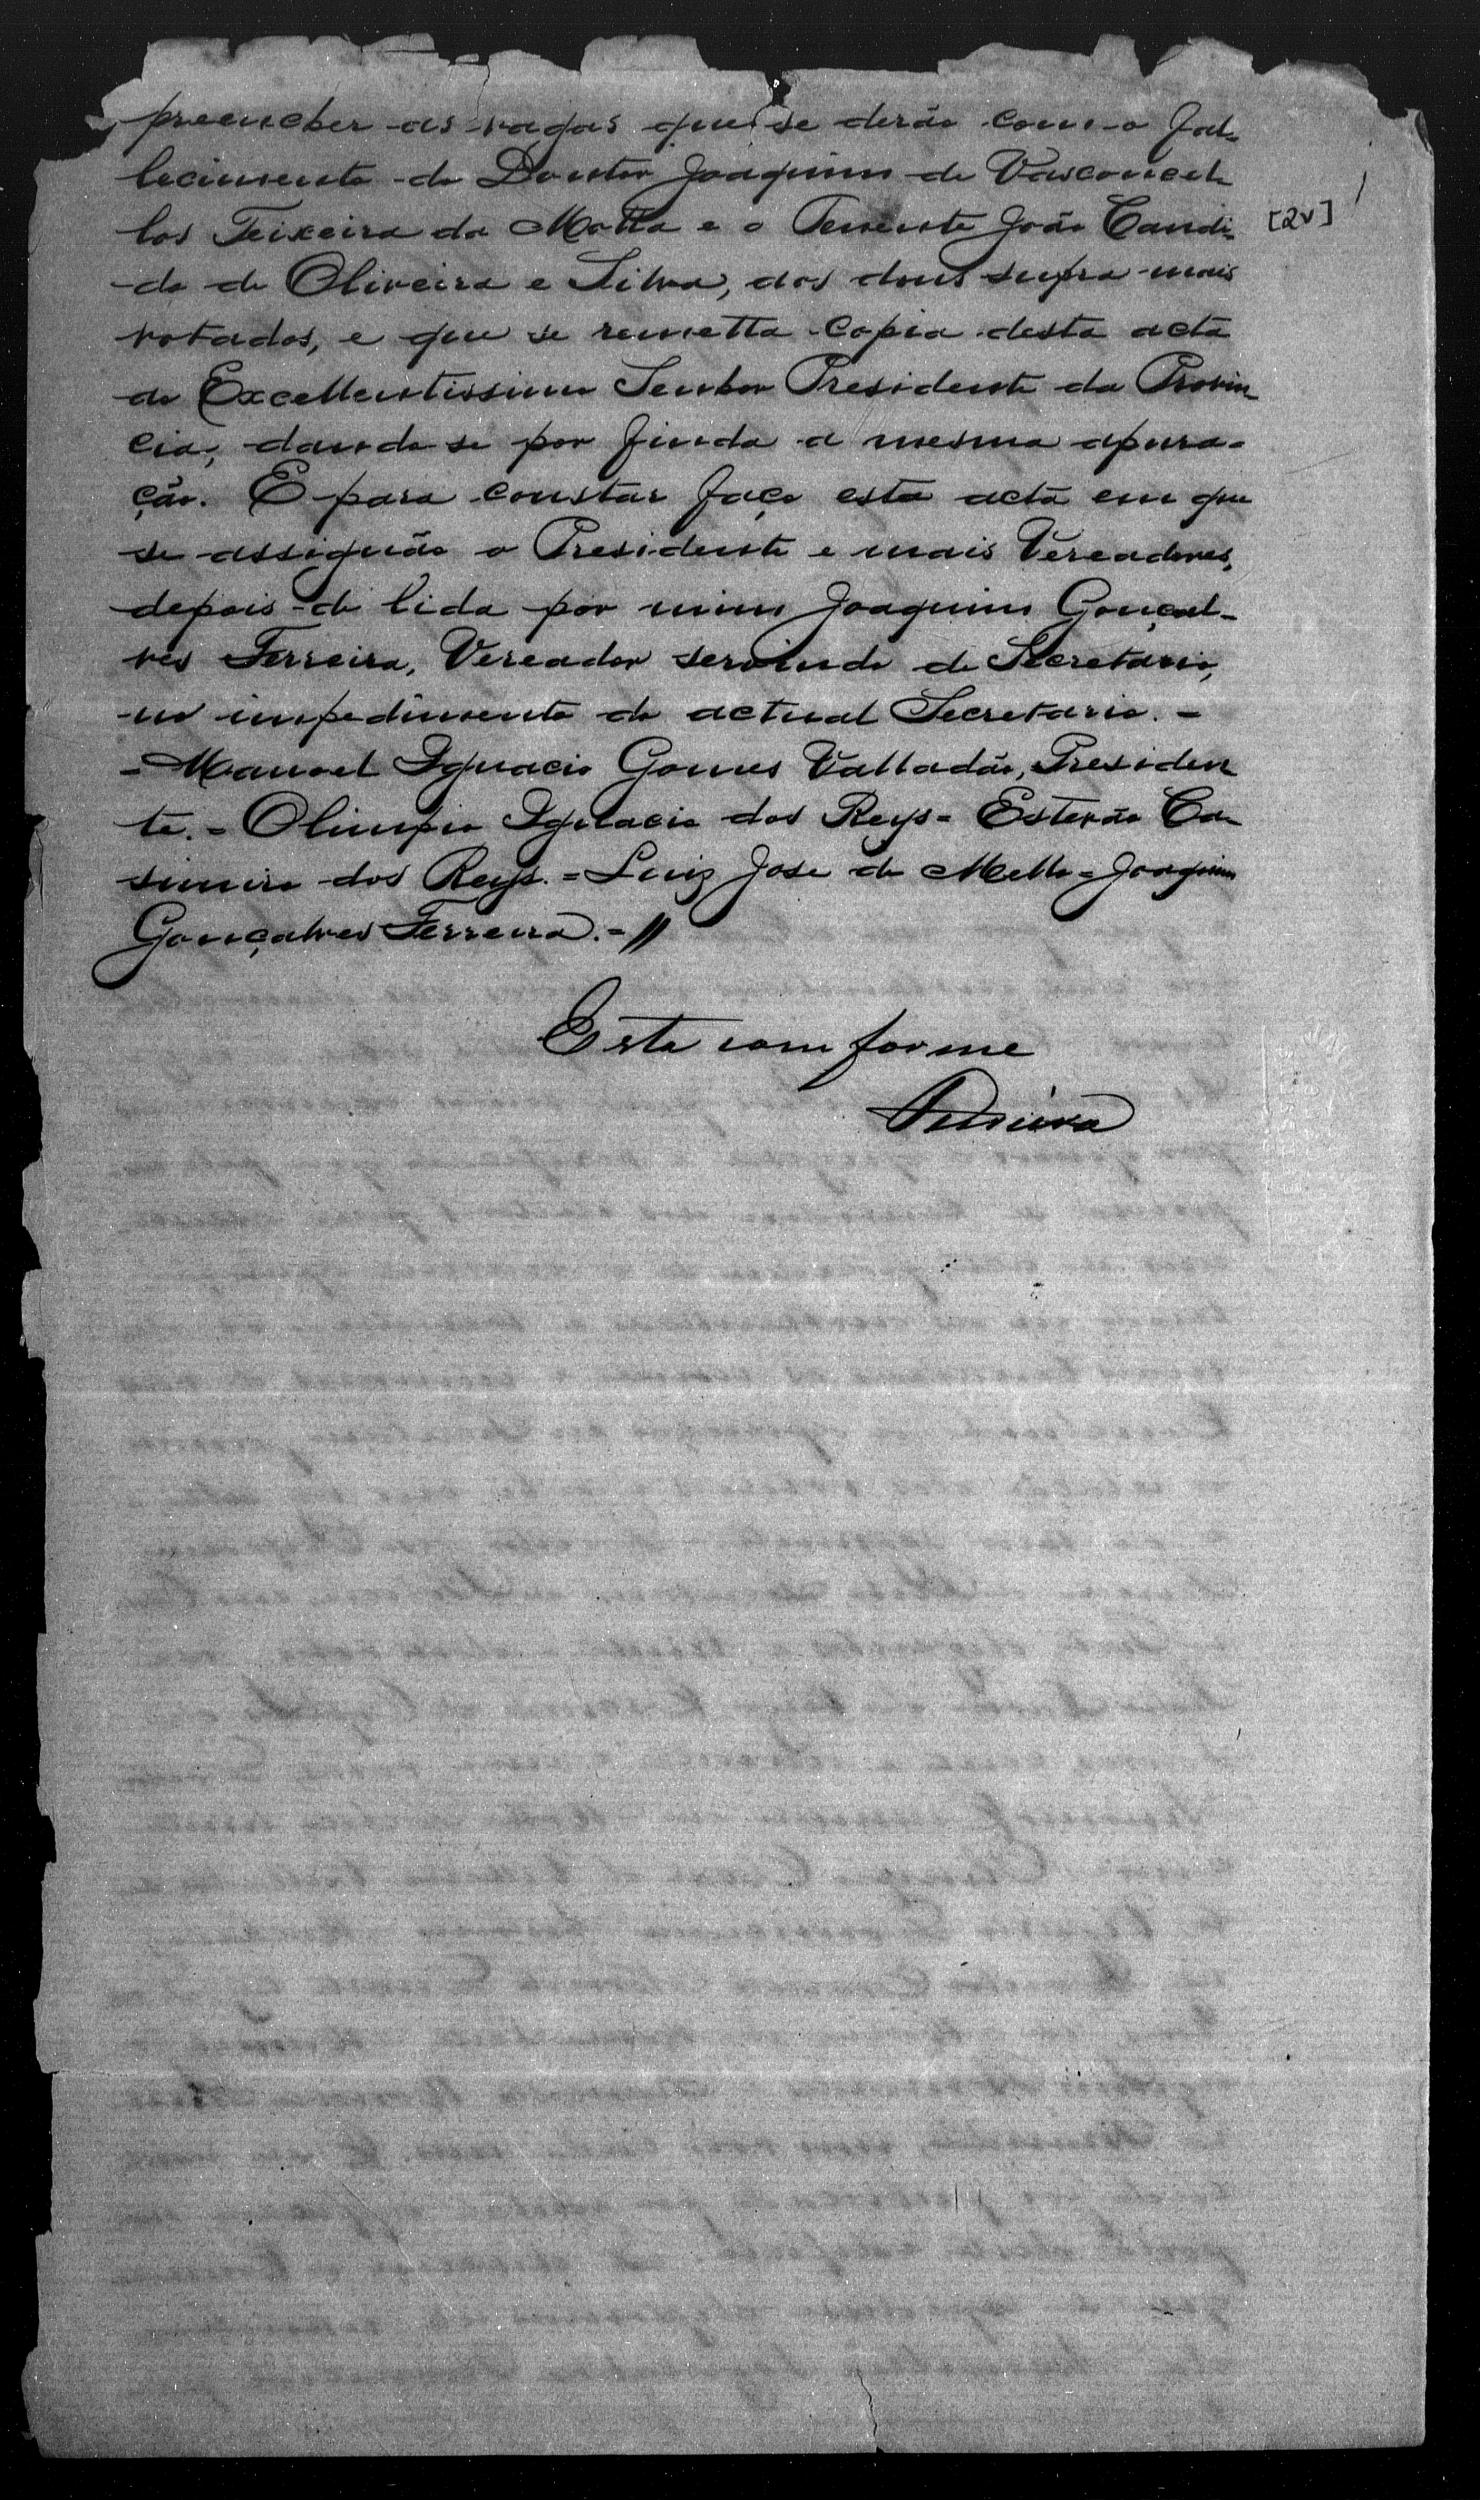 preencher as vagas que se derão com o fal-
lecimento do Doutor Joaquim de Vasconcel-
los Teixeira da Motta e o Tenente João Candi-
[2v]
do de Oliveira e Silva, dos dous supra mais
votados, e que se remetta copia desta acta
ao Excellentissimo Senhor Presidente da Provin-
cia, dando se por finda a mesma apura-
ção. E para constar faço esta acta em que
se assignão o Presidente e mais Vereadores,
depois de lida por mim Joaquim Gonçal-
ves Ferreira, Vereador servindo de Secretario,
no impedimento do actual Secretario. -
- Manoel Ignacio Gomes Valladão, Presiden-
te. = Olimpio Ignacio dos Reys = Estevão Ca-
simiro dos Reys. = Luiz Jose de Mello = Joaquim
Gonçalves Ferreira. = //
Esta comforme